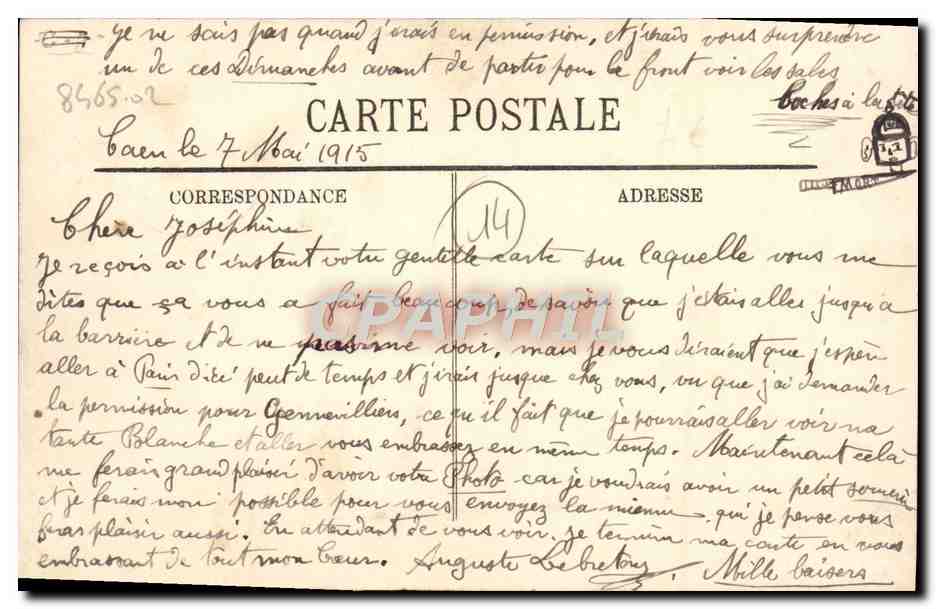 Je ne sais pas quand j'irais en permission, et j'irais vous surprendre
un de ces Dimanches avant de partir pour le front voir les sales
boches à la tête
8465.02
CARTE POSTALE
Caen le 7 Mai 1915
MORT
CORRESPONDANCE
ADRESSE
14
Chère Joséphine
Je reçois à l'instant votre gentille carte sur laquelle vous me
dites que ça vous a fait beaucoup de savoir que j'étais aller jusqu'à
la barrière et de ne pas me voir, mais je vous dirait que j'espère
aller à Paris d'ici peut de temps et j'irais jusque chez vous, vu que j'ai demander
la permission pour Gennevilliers, ce qu'il fait que je pourrais aller voir ma
tante Blanche et aller vous embrasser en même temps. Maintenant celà
me ferais grand plaisir d'avoir votre Photo car je voudrais avoir un petit souvenir
et je ferais mon possible pour vous envoyez la mienne qui je pense vous
feras plaisir aussi. En attendant de vous voir, je termine ma carte en vous
embrassant de tout mon Cœur. Auguste Lebretons. Mille baisers
CPAPHIL